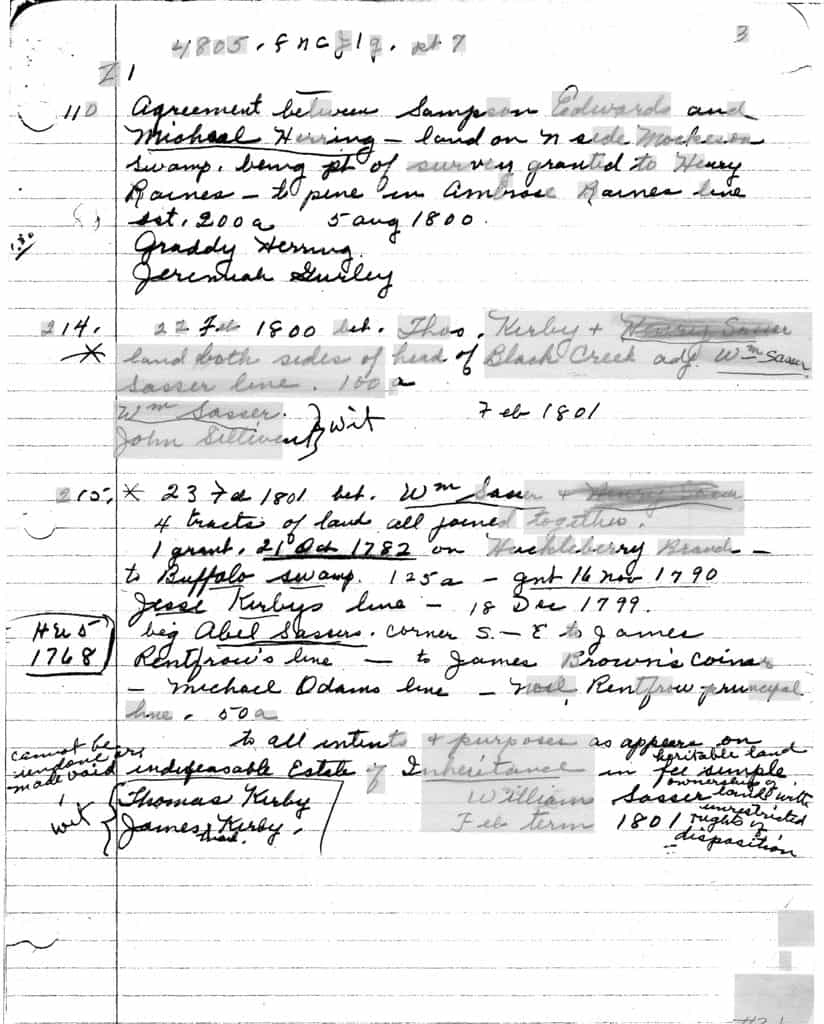 4805. F N C pt 7
3
I 1
110 Agreement between Sampson Edwards and
Michael Herring — land on N side Mockeson
swamp. being pt of survey granted to Henry
Raines — to pine in Ambrose Raines line
est. 200a 5 aug 1800.
Graddy Herring
Jeremiah Gurley
214. 22 Feb 1800 bet. Thos. Kirby + Henry Sasser
* land both sides of head of Black Creek adj. Wm Sasser
Sasser line. 100a
Wm Sasser.
John Sillivent } wit Feb 1801
215. * 23 Feb 1801 bet. Wm Sasser + Henry Sasser
4 tracts of land all joined together.
1 grant. 21 Oct 1782 on Huckleberry Branch —
to Buffalo swamp. 125a — gnt 16 nov 1790
Jesse Kirbys line — 18 Dec 1799.
beg Abel Sassers. corner S. — E to James
1768
Rentfrow's line — to James Brown's corner
— Michael Odams line — Noel Rentfrow principal
line. 50a
to all intents + purposes as appears on
cannot be
undone
made void
indefeasable Estate of Inheritance in fee simple
heritable land
ownership of
land with
unrestricted
rights of
disposition
wit { Thomas Kirby
James Kirby.
William Sasser
Feb term 1801